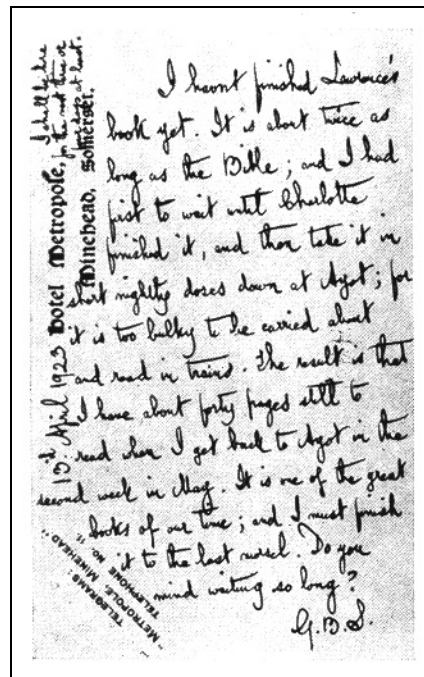 Hotel Metropole,
Minehead, Somerset.
I shall be here
for the next three or
four days at least.
13th April 1923
TELEGRAMS:
"METROPOLE, MINEHEAD."
TELEPHONE NO. 11.
I havnt finished Lawrence's
book yet. It is about twice as
long as the Bible; and I had
first to wait until Charlotte
finished it, and then take it in
short nightly doses down at Ayot; for
it is too bulky to be carried about
and read in trains. The result is that
I have about forty pages still to
read when I get back to Ayot in the
second week in May. It is one of the great
books of our time; and I must finish
it to the last morsel. Do you
mind waiting so long?
G.B.S.